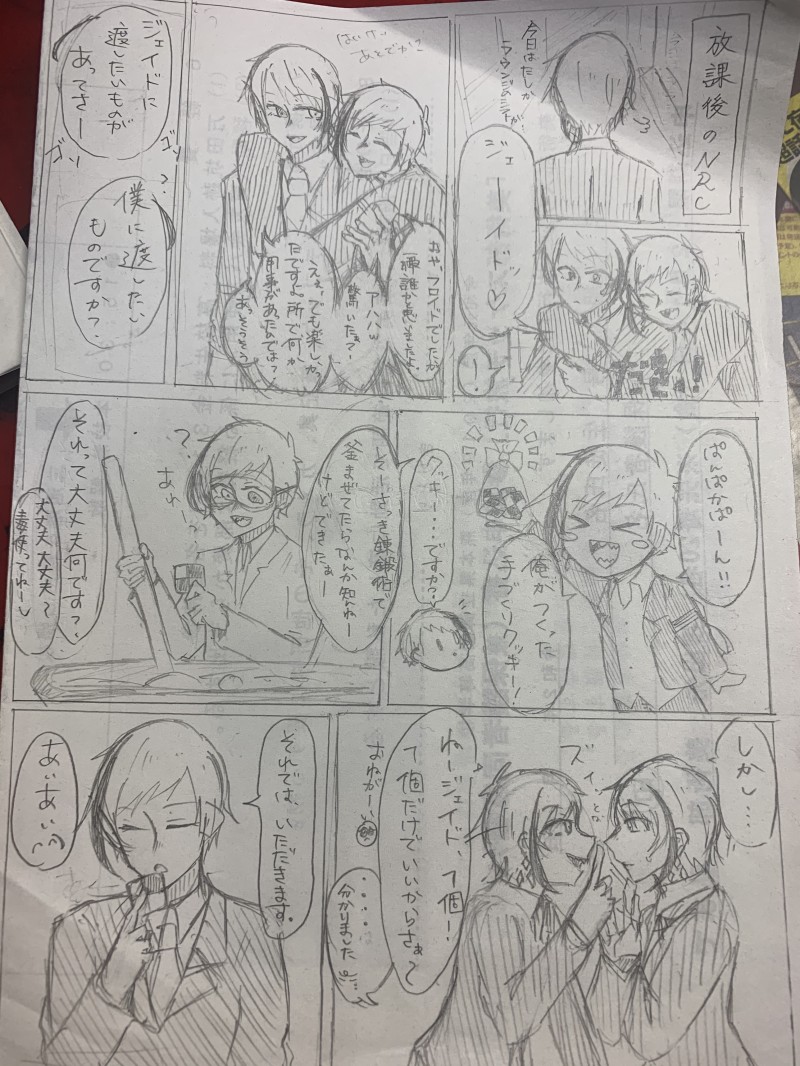 放課後のNRC
今日はたしか
ラウンジのシフトが..
ジェーイドッ♡
だきっ!
!
はいけい
あとでかく
おや、フロイドでしたか
一瞬誰かと思いましたよ。
アハハッ
驚いたぁ?
ええ、でも楽しかっ
たですよ。所で何か
用事があったのでは?
あっそうそう
ジェイドに
渡したいものが
あってさー
ゴソ
ゴソ
?
僕に渡したい
ものですか?
ぱんぱかぱーん!!
俺がつくった
手づくりクッキー!
クッキー…ですか?
そーさっき
釜まぜてたらなんか知んねー
けどできたぁー
?
あれ
?
それって大丈夫何です?
大丈夫大丈夫~
毒使ってねーし
しかし…
ズイッとな
ねージェイド、1個!
1個だけでいいからさぁ~
おねがーい
・・・・・
分かりました
それでは、いただきます。
あいあい